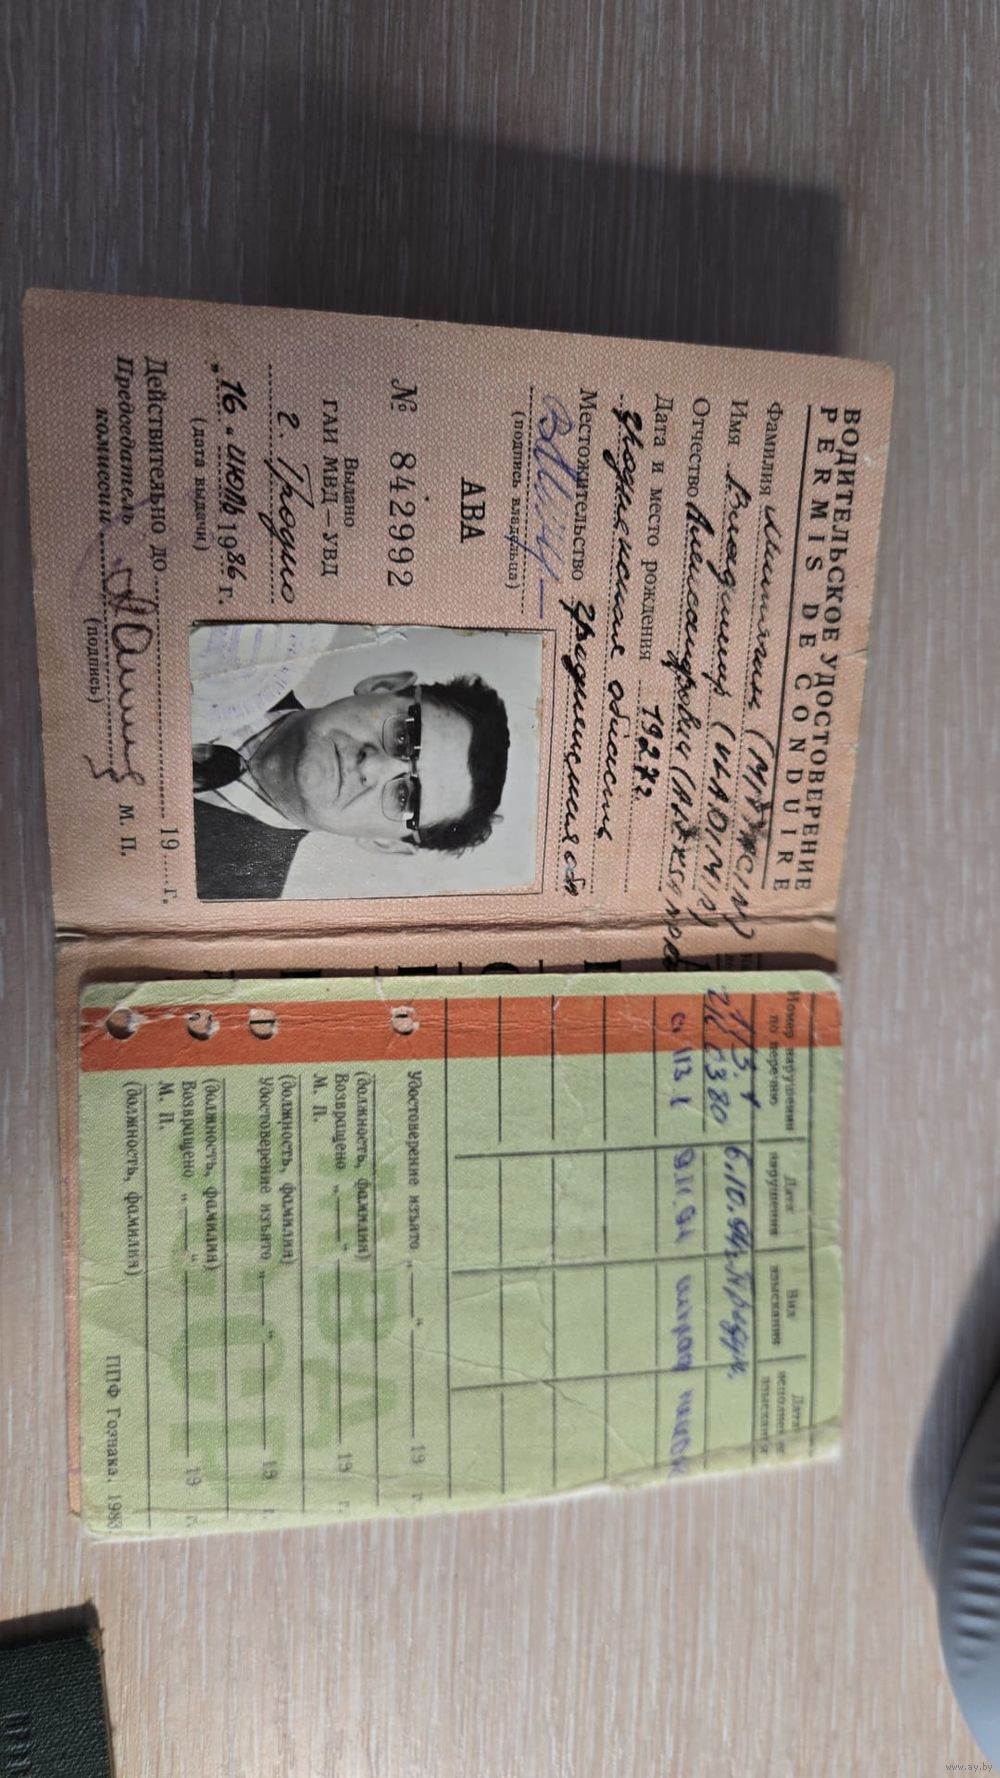 ВОДИТЕЛЬСКОЕ УДОСТОВЕРЕНИЕ
PERMIS DE CONDUIRE
Фамилия
Имя Владимир (VLADIMIR)
Отчество Александрович
Дата и место рождения 1927г.
гродненская область
Местожительство гродненская обл
(подпись владельца)
АВА
№ 842992
Выдано
ГАИ МВД—УВД
г. Гродно
„16“ июль 1986 г.
(дата выдачи)
Действительно до 19 г.
Председатель
комиссии
(подпись)
М. П.
Номер нарушения по перечню
Дата нарушения
Вид взыскания
Дата исполнения взыскания
113.1 6.10.94г
Удостоверение изъято „ “ 19 г.
(должность, фамилия)
Возвращено „ “ 19 г.
М. П.
(должность, фамилия)
Удостоверение изъято „ “ 19 г.
(должность, фамилия)
Возвращено „ “ 19 г.
М. П.
(должность, фамилия)
ППФ Гознака. 1983
www.ay.by